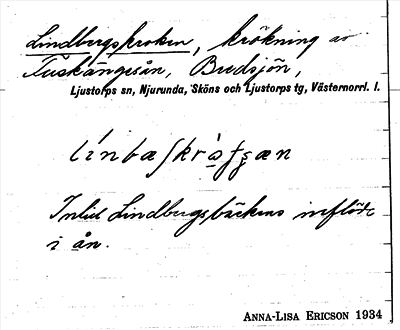 Lindbergskroken, krökning av
Fuskängesån, Bredsjön,
Ljustorps sn, Njurunda, Sköns och Ljustorps tg, Västernorrl. l.
Invid Lindbergsbäckens inflöde
i ån.
ANNA-LISA ERICSON 1934